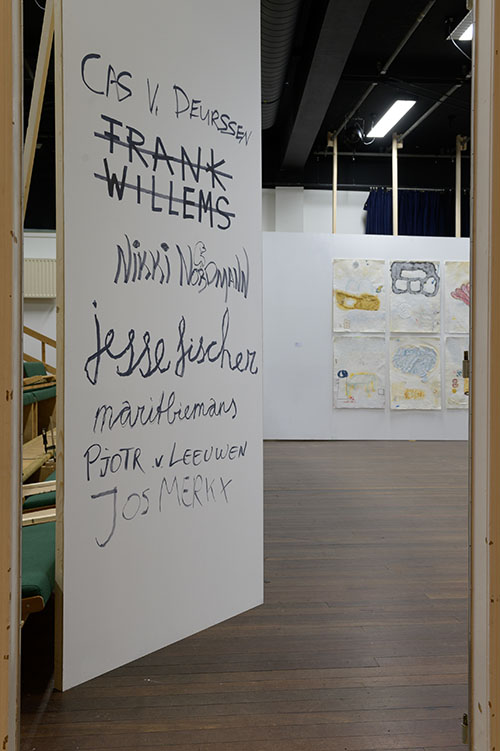 CAS V. DEURSSEN
FRANK
WILLEMS
NIKKI NORDMANN
jesse fischer
màritbiemans
PJOTR v. LEEUWEN
JOS MERKX